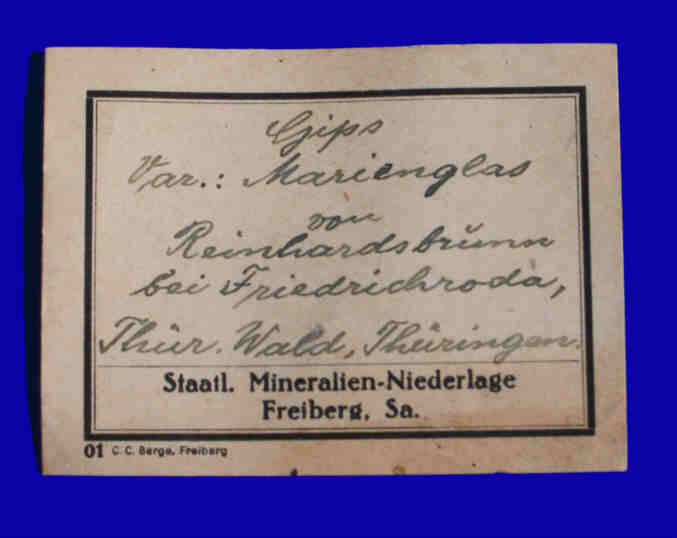 Gips
Var.: Marienglas
von
Reinhardsbrunn
bei Friedrichroda,
Thür. Wald, Thüringen.
Staatl. Mineralien-Niederlage
Freiberg, Sa.
01 C. C. Berge, Freiberg